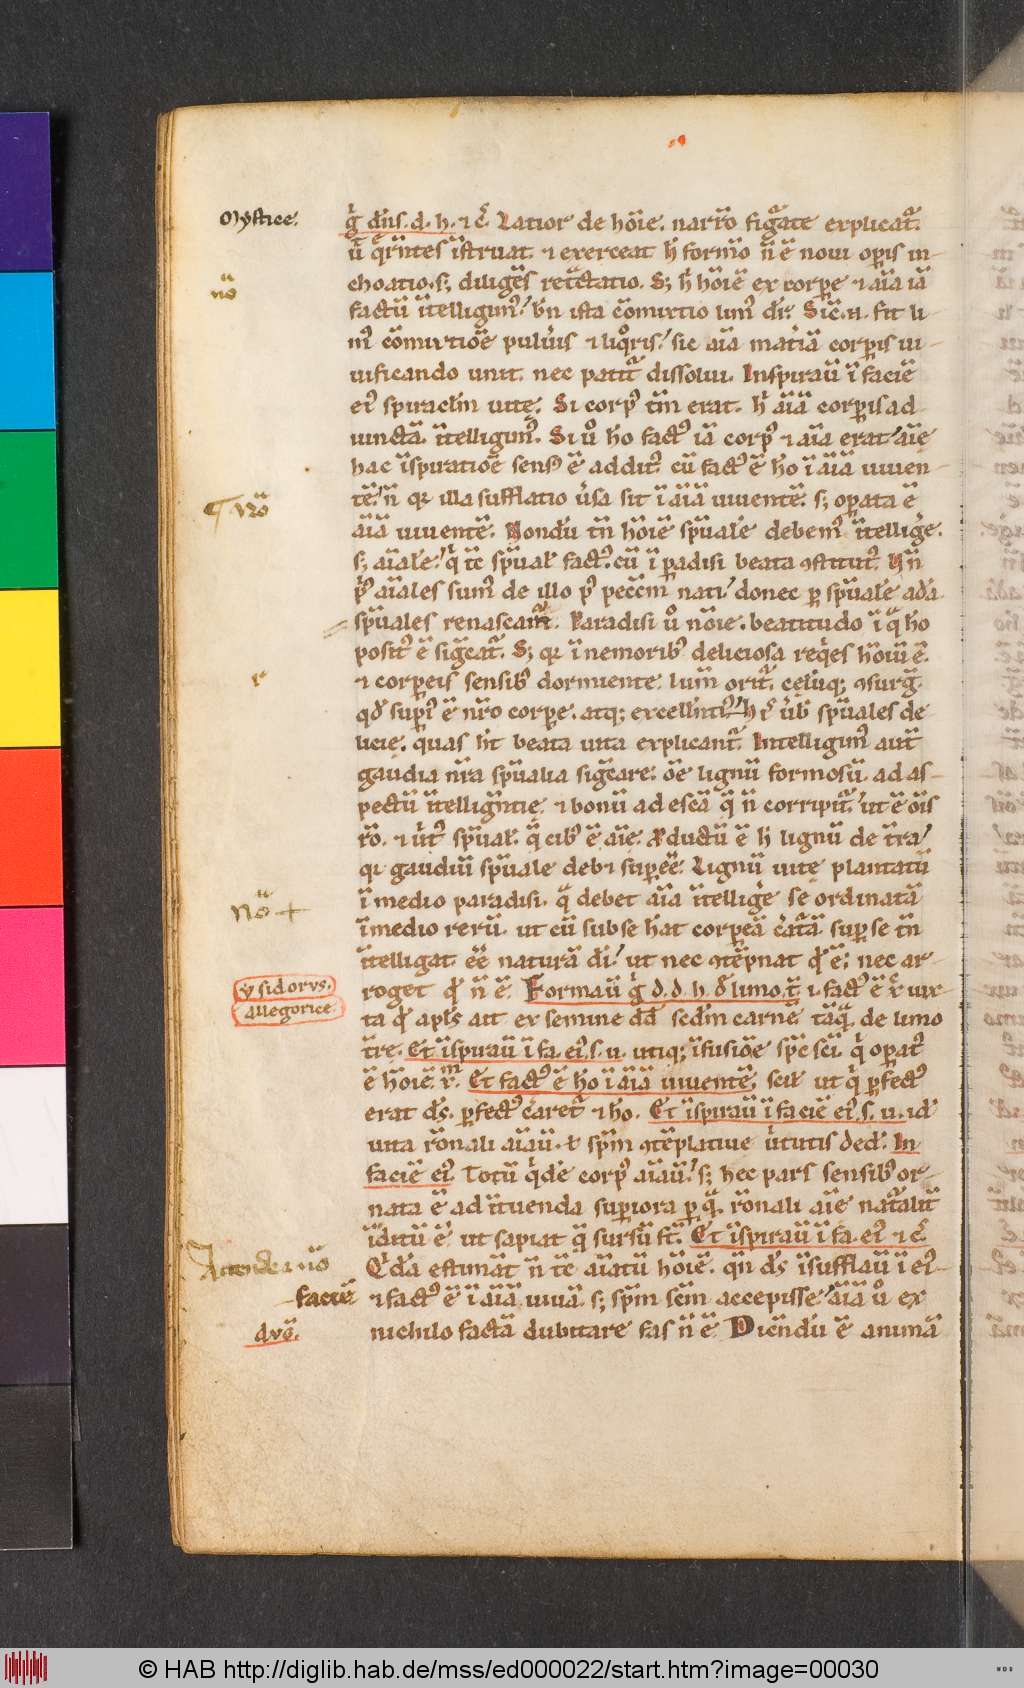 Mystice.
g̊ dn̄s. d. h. ⁊ c̄. Latior de hoīe. narr̄o figᵃate explicat᷑.
ū q̄r̄ntes īstruat. ⁊ exerceat h̄ form̄o n̄ ē noui op̲is in
choatio. s; diligēs ret̄ctatio. S; h̄ hoīē ex corpe ⁊ aīa iā
n̄o
factū ītelligim᷒. bn̄ ista cōmixtio lim᷒ dr̄. Sic̄.n. fit li
m᷒ cōmixtiōe pulūis ⁊ liq̊ris. sic aīa mat̄iā corp̲is ui
uificando unit. nec patit᷑ dissolui. Inspirauī ī faciē
ei᷒ spiraclm̄ uite. Si corp᷒ tm̄ erat. h̄ aīā corp̲is ad
iunctā. ītelligim᷒. Si ů ho fact᷒ iā corp᷒ ⁊ aīa erat aīe
hac īspiratiōe sens᷒ ē addit᷒. cū fact᷒ ē ho ī aīā uiuen-
tē. n̄ qr illa sufflatio ūsa sit ī aīā uiuentē. s; op̲ata ē
¶ Nō
aīā uiuentē. Nondū tn̄ hoīē sp̄uale debem᷒ ītelliḡe.
s; aīale. q̇ tc̄ sp̄ual᷑ fact᷒. cū ī p̲adisi beata ꝯstitut᷒. Un̄
p᷒ aīales sum᷒ de illo p᷒ pecc̄m nati. donec p̲ sp̄uale adā
sp̄uales renascam᷑. Paradisi ů noīe. beatitudo ī q̄ ho
posit᷒ ē sigc̄at᷑. S; qr ī nemorib᷒ deliciosa req̇es hoīū ē.
⁊ corp̲eis sensib᷒ dormiente. lum̄ orit᷑. celiq; ꝯsurg᷑.
r
qd̄ sup᷒ ē nr̄o corpe. atq; excellenti᷒. h̄ ⁊ ūb̄ sp̄uales de
licie. quas h̄t beata uita explicant᷑. Intelligim᷒ aut̄
gaudia nr̄a sp̄ualia sigc̄are. oē lignū formosū. ad as-
pectū ītelliḡntie. ⁊ bonū ad escā q̄ n̄ corripit᷑. ut ē oīs
r̄o. ⁊ ūt᷒ sp̄ual᷑. q̄ cib᷒ ē aīe. Pductū ē h̄ lignū de tr̄a.
qr gaudiū sp̄uale deb⁊ sup̲eē. Lignū uite plantatū
ī medio paradisi. q̄ debet aīa ītelliḡe se ordinatā
Nō +
ī medio rerū. ut cū sub se hāt corp̲eā cātᵃā. sup̲ se tn̄
ītelligat eē naturā dī. ut nec ꝯtēpnat qd̄ ē; nec ar-
roget qd̄ n̄ ē. Formauī g̊ d. d. h. d̄ limo. t̄. i. fact᷒ ē x̄ iux-
ysidorvs.
allegorice.
ta qd̄ apl̄s ait ex semine dd̄ scd̄m carnē. tāq̄. de limo
tr̄e. Et īspirauī ī fa. ei᷒. s. u. utiq; īfusiōe sp̄c sc̄i. q̇ op̲at᷒
ē hoīē. x̄m. Et fact᷒ ē ho ī aīā uiuentē. scił ut q̇ p̲fect᷒
erat ds̄. p̲fect᷒ c̄aret᷑ ⁊ ho. Et īspirauī ī faciē ei᷒. s. u. id᷑
uita r̄onali aīauī. ł sp̄m ꝯtēplatiue ūtutis ded᷑. In
faciē ei᷒. Totū q̇de corp᷒ aīauī. s; hec pars sensib᷒ or-
nata ē ad ītuenda sup̲iora p̲ q̄. r̄onali aīe natᵃalit᷑
īditū ē ut sapiat q̄ sursū st̄. Et īspirauī ī fa. ei᷒ ⁊ c̄.
Attende nō
Q̇dā estimāt n̄ tc̄ aīatū hoīē. qn̄ ds̄ īsufflauī ī ei᷒.
faciē
⁊ fact᷒ ē ī aīā uiuā. s; sp̄m sc̄m accepisse. aīā ů ex
dvo.
nichilo factā dubitare fas n̄ ē. Dicn̄dū ē animā
© HAB http://diglib.hab.de/mss/ed000022/start.htm?image=00030